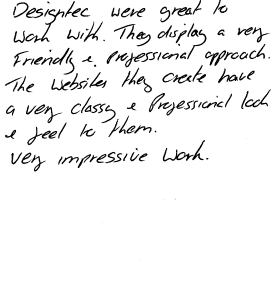 Designtec were great to
work with. They display a very
Friendly & Professional approach.
The websites they create have
a very classy & Professional look
& feel to them.
very impressive work.